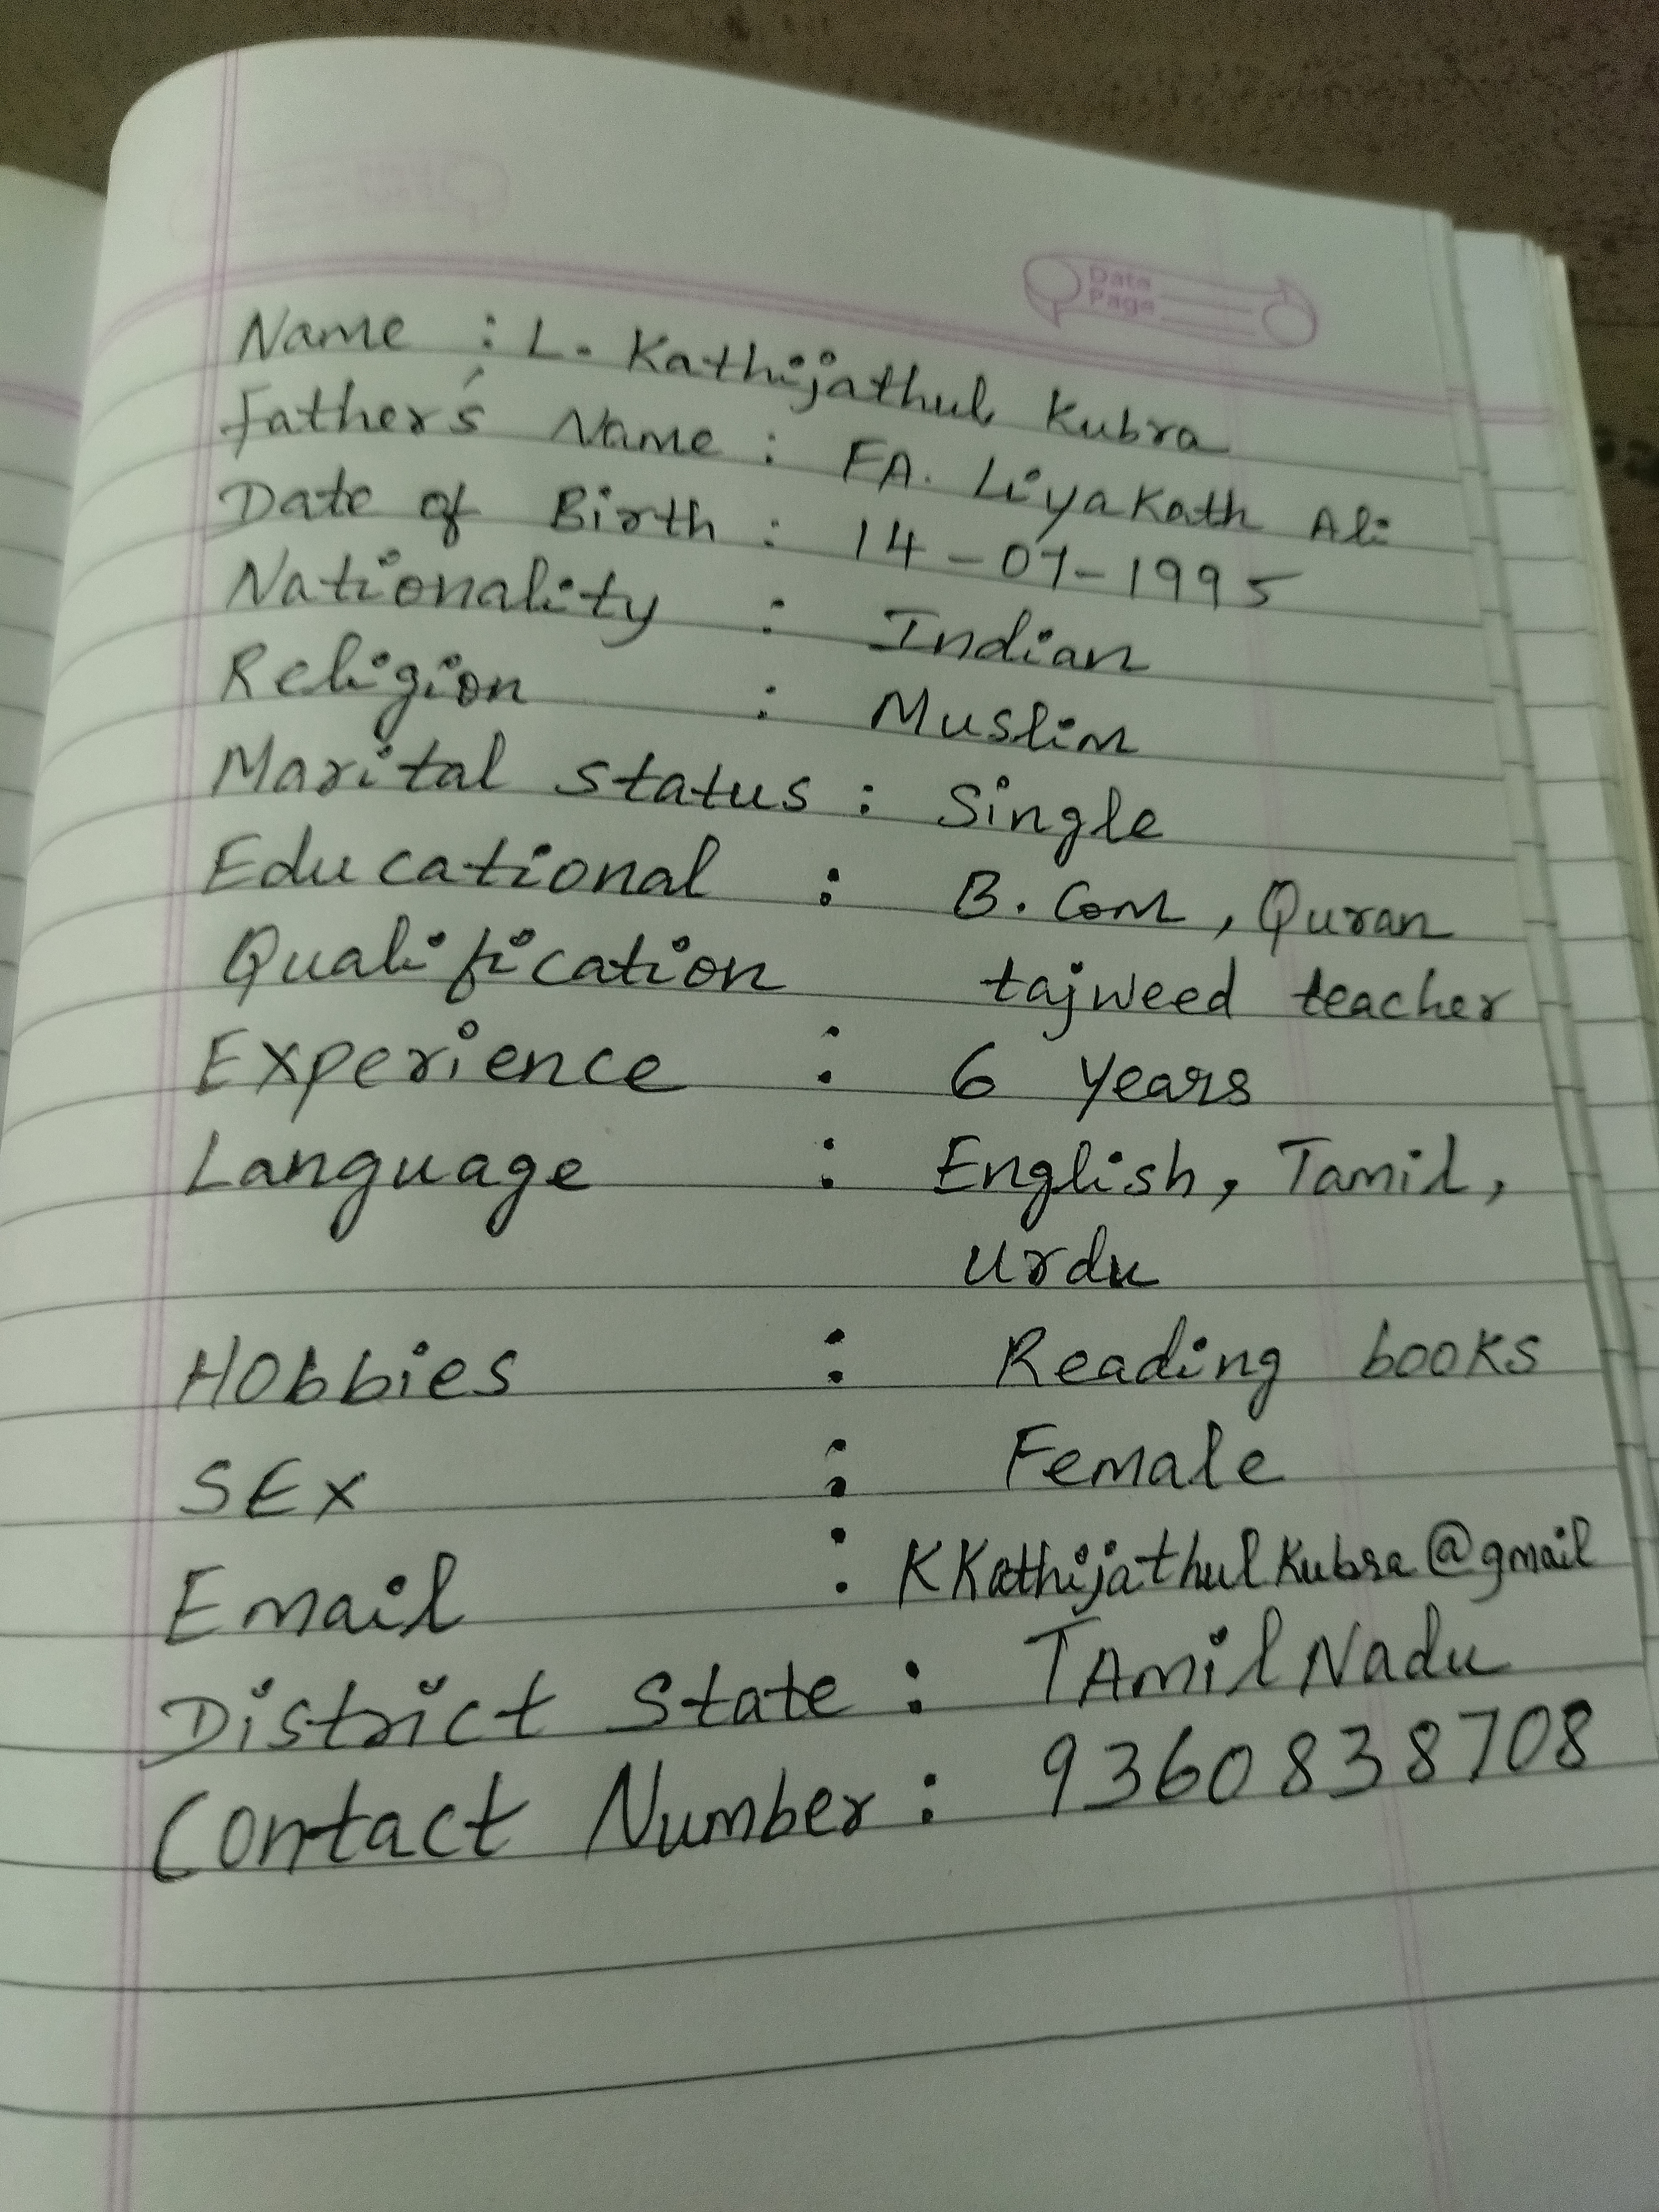 Date
Page
Name : L. Kathijathul Kubra
Father's Name : FA. Liyakath Ali
Date of Birth : 14-07-1995
Nationality : Indian
Religion : Muslim
Marital Status : Single
Educational : B.Com, Quran
Qualification tajweed teacher
Experience : 6 Years
Language : English, Tamil,
Urdu
Hobbies : Reading books
SEx : Female
Email : KKathijathulKubra@gmail
District State : TAmil Nadu
Contact Number : 9360838708